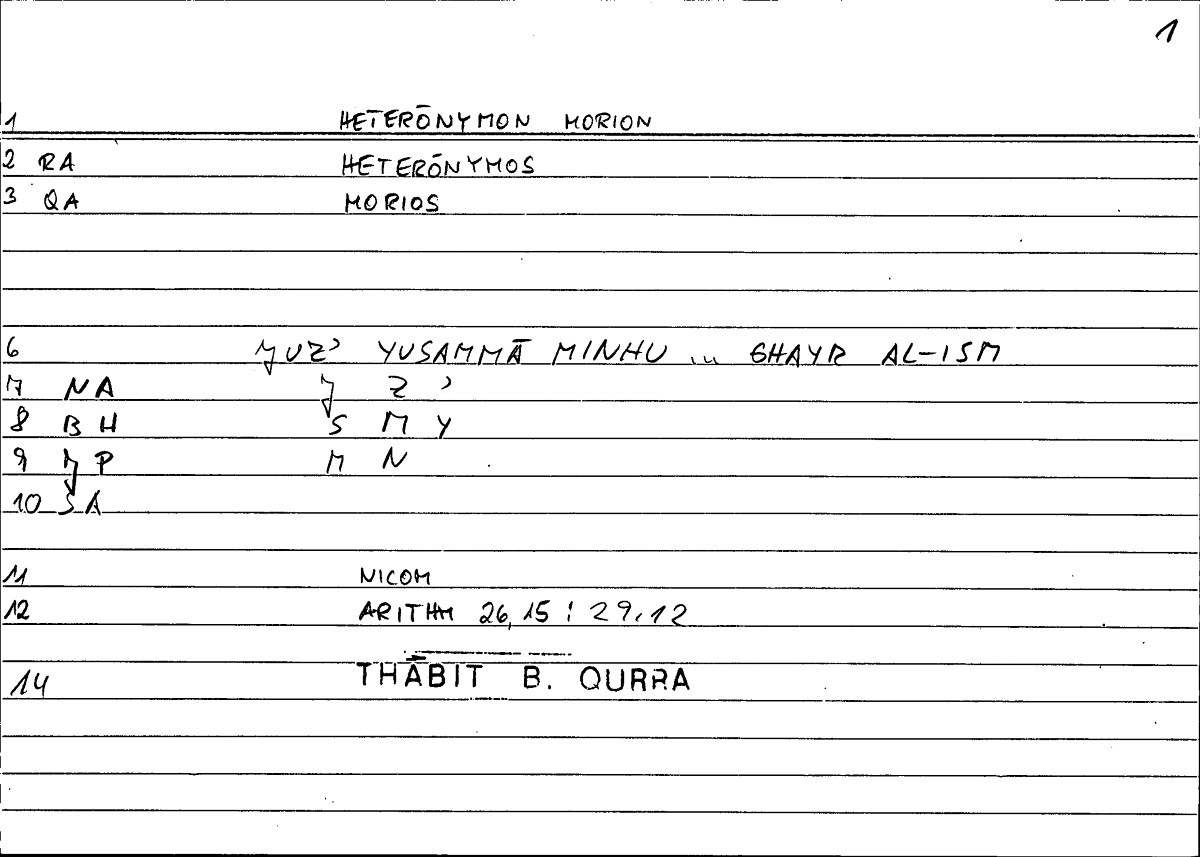 1
1 HETERŌNYMON MORION
2 RA HETERŌNYMOS
3 QA MORIOS
6 JUZ' YUSAMMĀ MINHU ... GHAYR AL-ISM
7 NA J Z '
8 BH S M Y
9 JP M N
10 SA
11 NICOM
12 ARITHM 26,15 : 29,12
14 THĀBIT B. QURRA